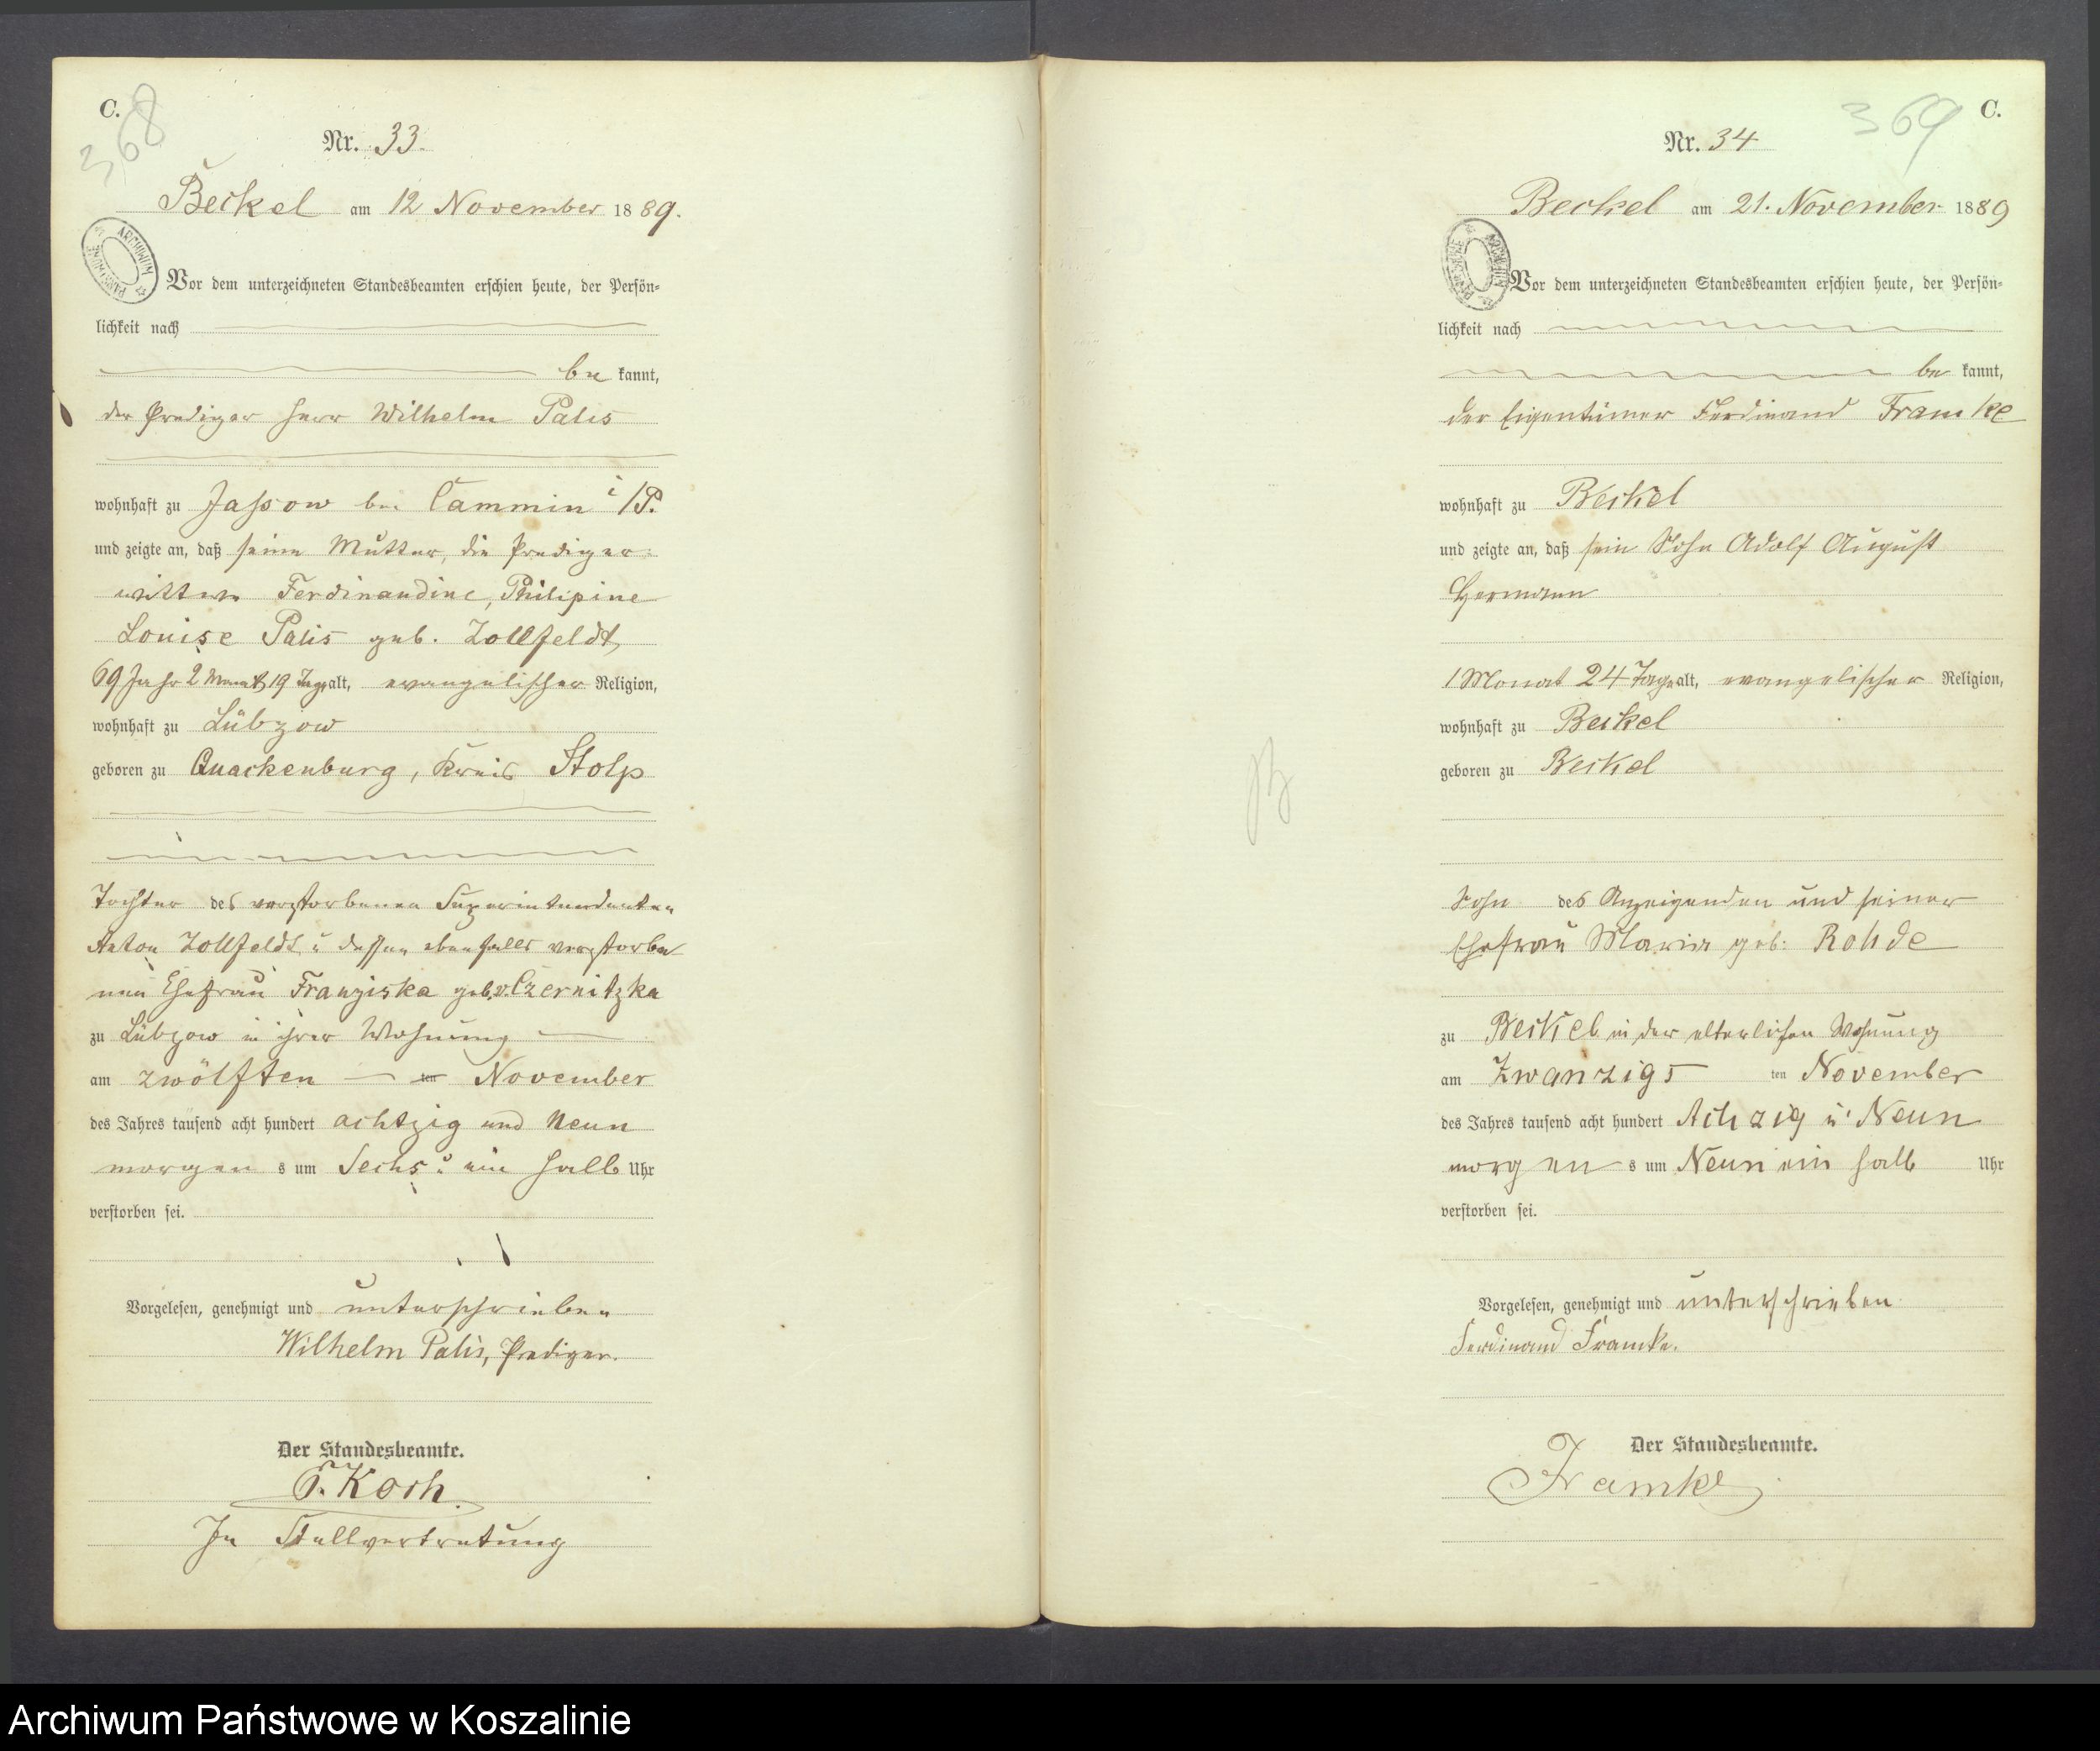 C.
368
Nr. 33.
Beckel am 12 November 1889.
ARCHIWUM PAŃSTWOWE
Vor dem unterzeichneten Standesbeamten erschien heute, der Persön-
lichkeit nach
be kannt,
der Prediger Herr Wilhelm Palis
wohnhaft zu Jassow bei Cammin i/P.
und zeigte an, daß seine Mutter, die Prediger-
wittwe Ferdinandine, Philipine
Louise Palis geb. Zollfeldt,
69 Jahr 2 Monat 19 Tage alt, evangelischer Religion,
wohnhaft zu Lübzow
geboren zu Quackenburg, Kreis Stolp
Tochter des verstorbenen Superintendenten
Anton Zollfeldt u dessen ebenfalls verstorbe
nen Ehefrau Franziska geb. v. Czernitzka
zu Lübzow in ihrer Wohnung
am zwölften ten November
des Jahres tausend acht hundert achtzig und Neun
morgen s um Sechs u ein halb Uhr
verstorben sei.
Vorgelesen, genehmigt und unterschrieben
Wilhelm Palis, Prediger.
Der Standesbeamte.
Koch
In Stellvertretung
369 C.
Nr. 34
Beckel am 21. November 1889
ARCHIWUM PAŃSTWOWE
Vor dem unterzeichneten Standesbeamten erschien heute, der Persön-
lichkeit nach
be kannt,
der Eigentümer Ferdinand Framke
wohnhaft zu Beckel
und zeigte an, daß sein Sohn Adolf August
Hermann
1 Monat 24 Tage alt, evangelischer Religion,
wohnhaft zu Beckel
geboren zu Beckel
Sohn des Anzeigenden und seiner
Ehefrau Maria geb. Rohde
zu Beckel in der elterlichen Wohnung
am Zwanzigs ten November
des Jahres tausend acht hundert Achzig u Neun
morgen s um Neun ein halb Uhr
verstorben sei.
Vorgelesen, genehmigt und unterschrieben
Ferdinand Framke.
Der Standesbeamte.
Framke
Archiwum Państwowe w Koszalinie